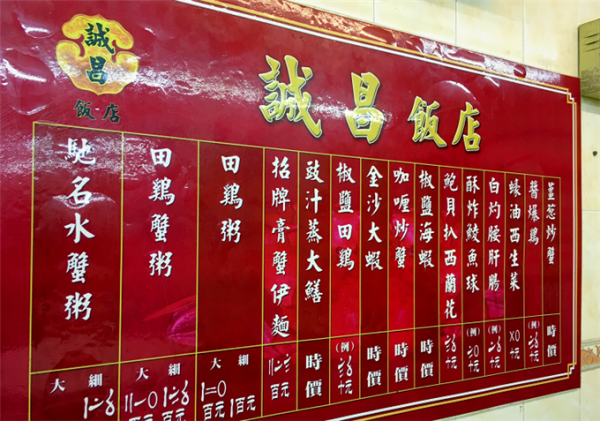 誠昌
飯店
誠昌飯店
薑葱炒蟹
時價
醬爆鷄
(例)
十元
蠔油西生菜
十元
白灼腰肝腸
(例)
十元
酥炸鯪魚球
(例)
十元
鮑貝扒西蘭花
十元
椒鹽海蝦
時價
咖喱炒蟹
時價
金沙大蝦
時價
椒鹽田鷄
(例)
十元
豉汁蒸大鱔
時價
招牌膏蟹伊麵
百元
田鷄粥
細
1百元
大
百元
田鷄蟹粥
細
百元
大
百元
馳名水蟹粥
細
大